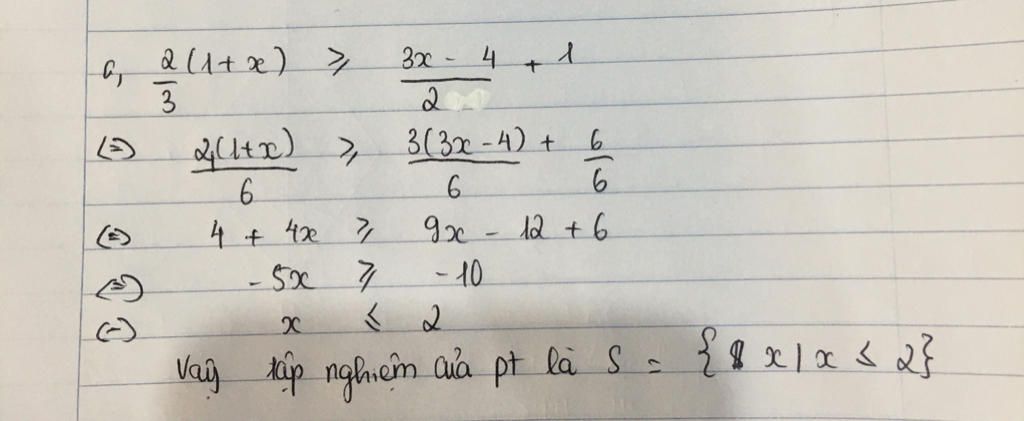 a, 2/3 (1+x) ≥ (3x - 4)/2 + 1
(=) 2(1+x)/6 ≥ 3(3x-4)/6 + 6/6
(=) 4 + 4x ≥ 9x - 12 + 6
(=) -5x ≥ -10
(=) x ≤ 2
Vậy tập nghiệm của pt là S = {x | x ≤ 2}